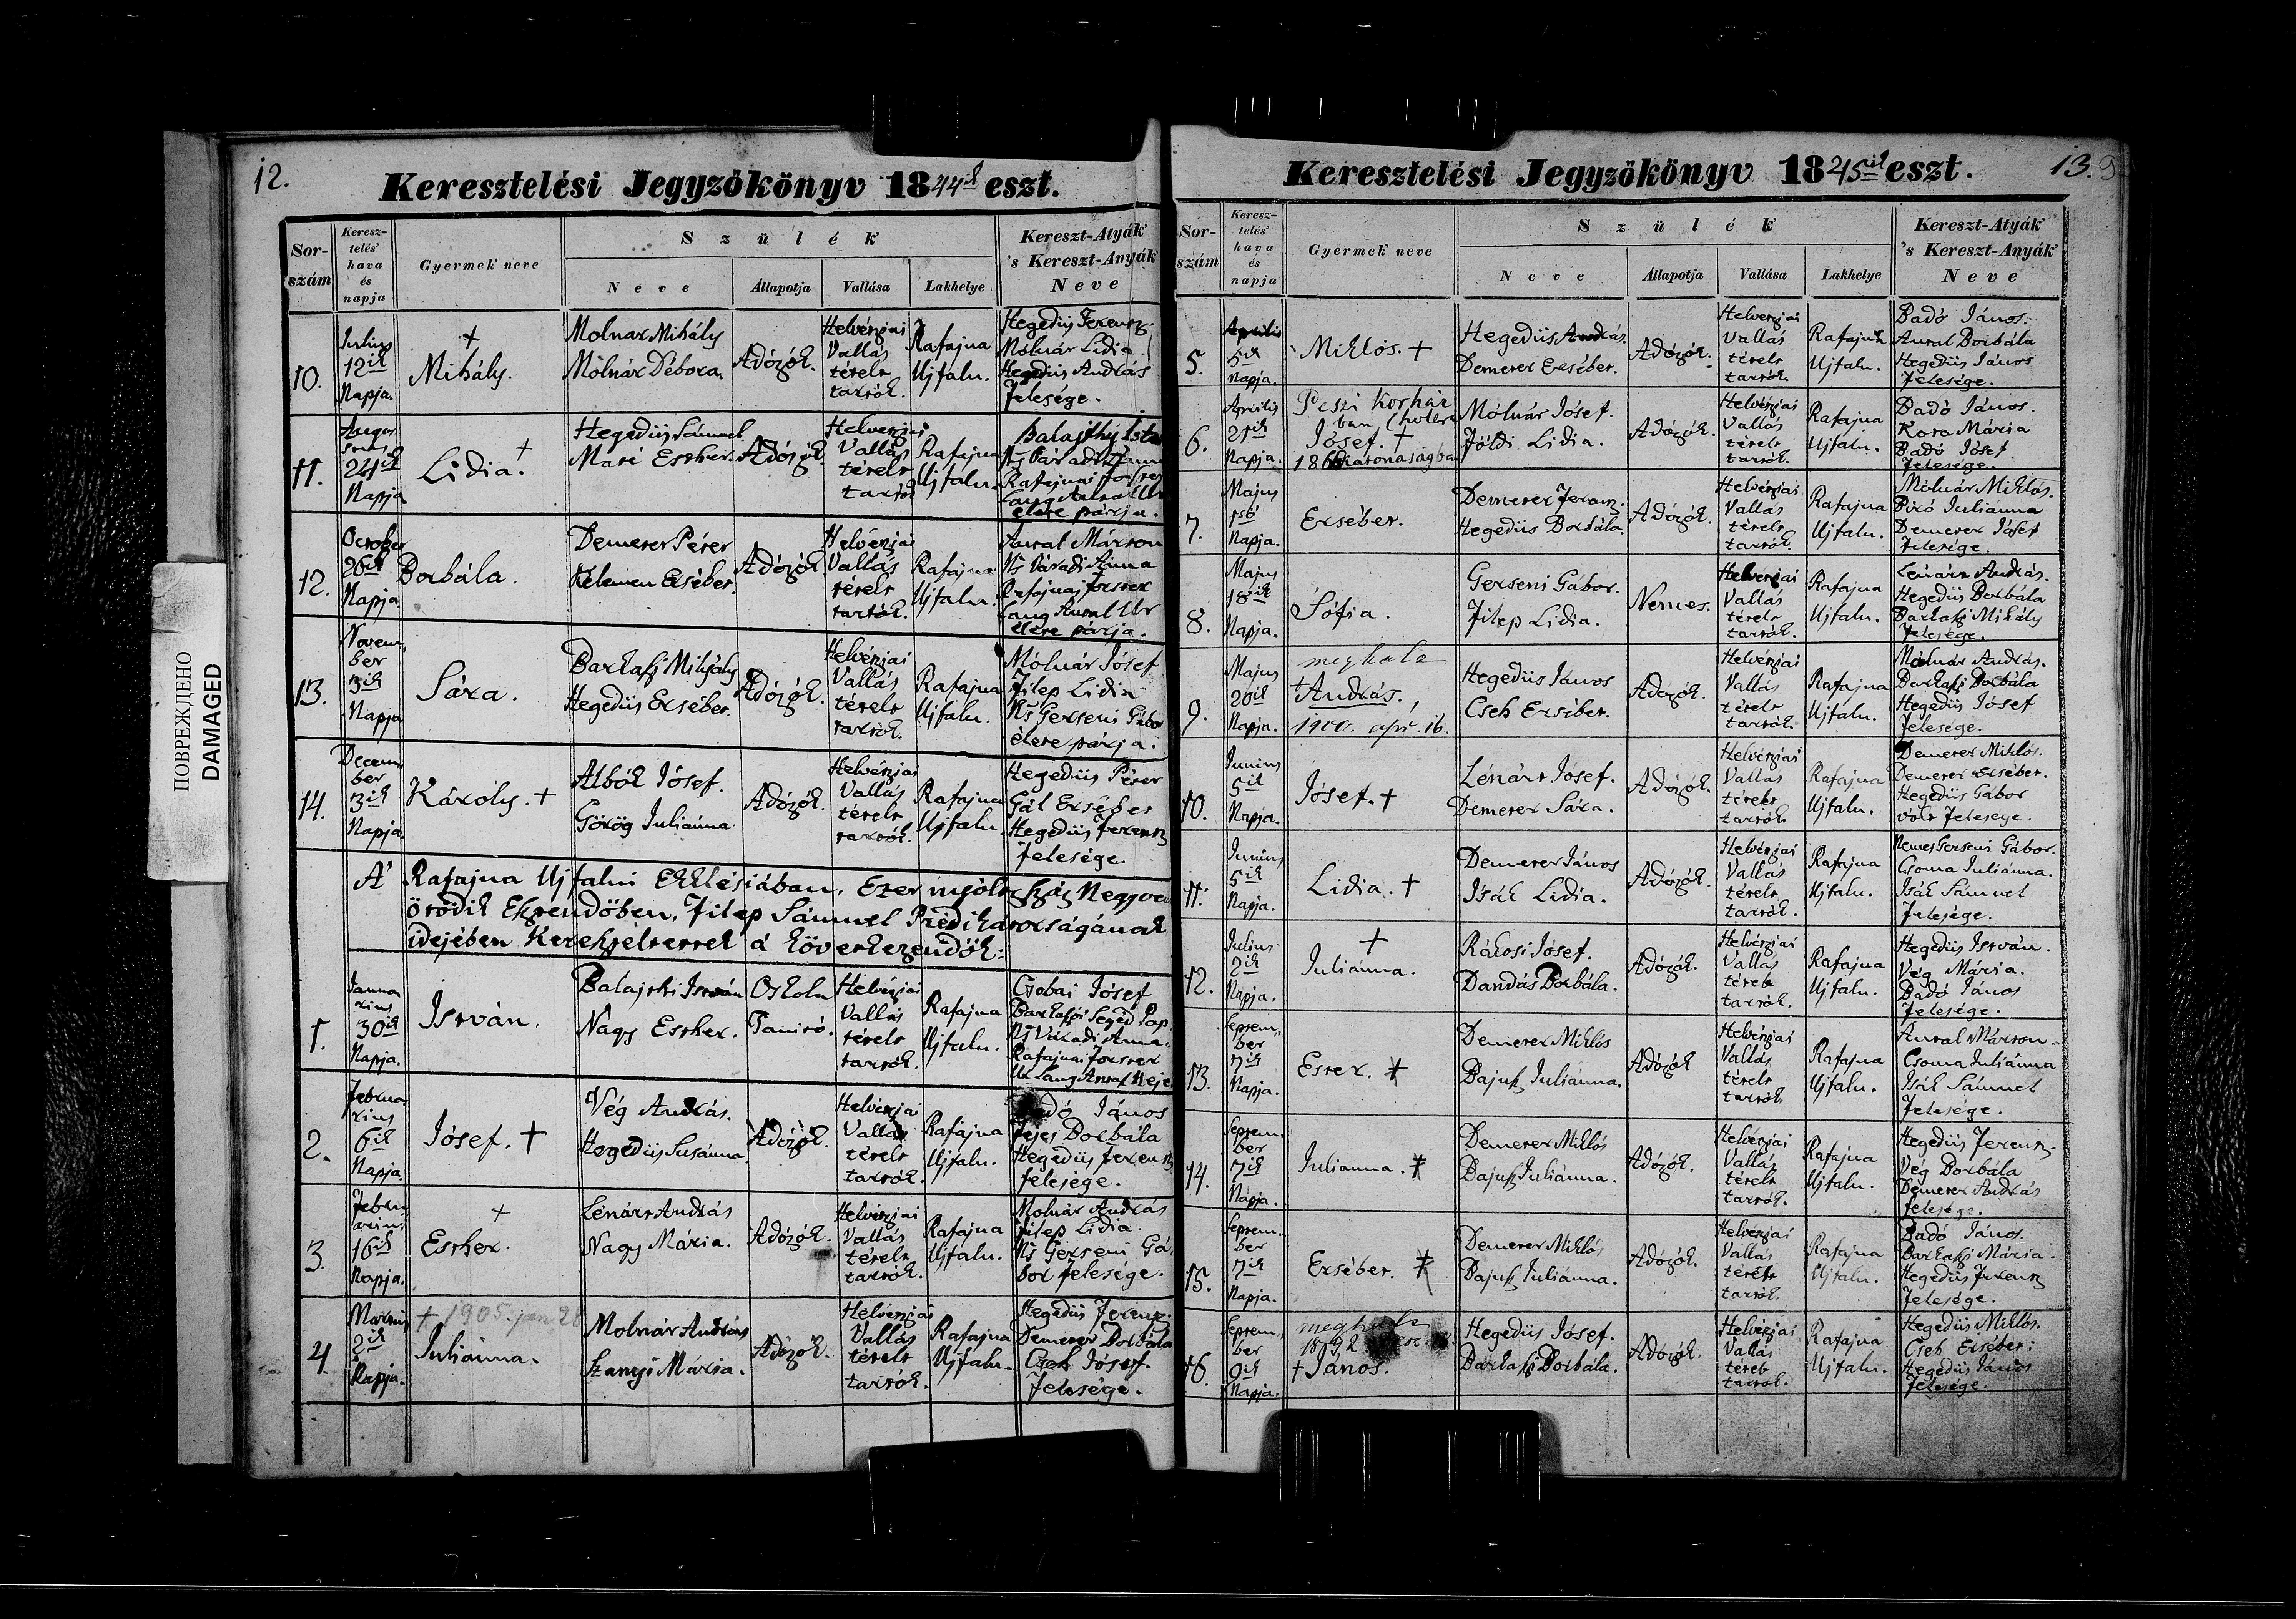 12.
Keresztelési Jegyzőkönyv 1844ik eszt.
Sor-szám
Keresz-telés' hava és napja
Gyermek' neve
Szülék'
Neve
Állapotja
Vallása
Lakhelye
Kereszt-Atyák' 's Kereszt-Anyák' Neve
10.
Julius 12ik Napja.
+ Mihály.
Molnar Mihály
Mólnár Débora.
Adózók.
Helvéziai Vallás tételt tartók.
Rafajna Ujfalu.
Hegedüs Ferenz.
Mólnár Lidia
Hegedüs András
felesége.
11.
24ik Napja
Lidia. +
Hegedüs Sámuel
Maré Esther.
Adózók
Helveziai Vallás tételt tartók
Rafajna Ujfalu.
Balajthy
élete párja.
12.
October 26ik Napja
Borbála.
Demeter Péter
Kelemen Ersébet.
Adózók
Helvéziai Vallás tételt tartók.
Rafajna Ujfalu.
Antal Márton
Ns Váradi Anna
élete párja.
13.
November 3ik Napja
Sára.
Barkaszi Mihály
Hegedüs Ersébet.
Adózók.
Helvéziai Vallás tételt tartók.
Rafajna Ujfalu.
Mólnár Jósef
Filep Lidia
Ns Gerseni Gábor
élete párja.
14.
December 3ik Napja.
Károly. +
Albók Jósef.
Görög Juliánna.
Adózók.
Helvéziai Vallás tételt tartók.
Rafajna Ujfalu.
Hegedüs Péter
Gál Ersébet
Hegedüs Ferenz
felesége.
A' Rafajna Ujfalui Ekklésiában, Ezer nyoltz száz Negyven
ötödik Esztendőben, Filep Sámuel Prédikátorságának
idejében Kereszteltettek a' következendők:
1.
Januarius 30ik Napja.
István.
Balajthi István
Nagy Esther.
Oskola Tanító.
Helvéziai Vallás tételt tartók.
Rafajna Ujfalu.
Csobai Jósef
Ns Váradi Anna.
2.
Februarius 6ik Napja.
Jósef. +
Vég András.
Hegedüs Susánna
Adózók.
Helvéziai Vallás tételt tartók.
Rafajna Ujfalu.
Badó János
Borbála
Hegedüs Ferenz
felesége.
3.
Februarius 16ik Napja.
+ Esther.
Lénárt András
Nagy Mária.
Adózók.
Helvéziai Vallás tételt tartók.
Rafajna Ujfalu.
Molnár András
Filep Lidia.
Ns Gerseni Gá-
bor felesége.
4.
Martius 2ik Napja.
+ 1905. jan 28
Juliánna.
Molnár András
Szanyi Mária.
Adózók.
Helvéziai Vallás tételt tartók.
Rafajna Ujfalu.
Hegedüs Ferenz.
Demeter Borbála
Cseh Jósef.
felesége.
13.
Keresztelési Jegyzőkönyv 1845ik eszt.
Sor-szám
Keresz-telés' hava és napja
Gyermek neve
Szülék'
Neve
Állapotja
Vallása
Lakhelye
Kereszt-Atyák' 's Kereszt-Anyák' Neve
5.
Aprilis 5ik Napja.
Miklós. +
Hegedüs András.
Demeter Ersébet.
Adózók.
Helveziai Vallás tételt tartók.
Rafajna Ujfalu.
Badó János.
Antal Borbála
Hegedüs János
felesége.
6.
Aprilis 21ik Napja.
Pesti Korház
ban
Jósef. +
Mólnár Jósef.
Földi Lidia.
Adózók.
Helvéziai Vallás tételt tartók.
Rafajna Ujfalu.
Badó János.
Kora Mária
Badó Jósef
felesége.
7.
Majus 1ső Napja.
Ersébet.
Demeter Ferenz.
Hegedüs Borbála.
Adózók.
Helvéziai Vallás tételt tartók.
Rafajna Ujfalu.
Mólnár Miklós.
Biró Julianna
Demeter Jósef
felesége.
8.
Majus 18ik Napja.
Sófia.
Gerseni Gábor.
Filep Lidia.
Nemes.
Helveziai Vallás tételt tartók.
Rafajna Ujfalu.
Lénárt András.
Hegedüs Borbála
Barkaszi Mihály
felesége.
9.
Majus 20ik Napja.
meghalt
+ András.
1900. ápr. 16.
Hegedüs János
Cseh Erséber.
Adózók.
Helvéziai Vallás tételt tartók.
Rafajna Ujfalu.
Mólnár András.
Barkaszi Borbála
Hegedüs Jósef
felesége.
10.
Junius 5ik Napja.
Jósef. +
Lénárt Jósef.
Demeter Sára.
Adózók.
Helvéziai Vallás tételt tartók.
Rafajna Ujfalu.
Demeter Miklós.
Demeter Erséber.
Hegedüs Gábor
vólt felesége.
11.
Junius 5ik Napja.
Lidia. +
Demeter János
Isák Lidia.
Adózók.
Helvéziai Vallás tételt tartók.
Rafajna Ujfalu.
Nemes Gerseni Gábor.
Csoma Juliánna.
Isák Sámuel
felesége.
12.
Julius 2ik Napja.
+ Juliánna.
Rákosi Jósef.
Dandás Borbála.
Adózók.
Helvéziai Vallás tételt tartók.
Rafajna Ujfalu.
Hegedüs István.
Vég Mária.
Badó János
felesége.
13.
September 7ik Napja.
Ester. +
Demeter Miklós
Bajusz Juliánna.
Adózók
Helvéziai Vallás tételt tartók.
Rafajna Ujfalu.
Antal Márton.
Csoma Juliánna
Isák Sámuel
felesége.
14.
September 7ik Napja.
Julianna. +
Demeter Miklós
Bajusz Juliánna.
Adózók.
Helvéziai Vallás tételt tartók.
Rafajna Ujfalu.
Hegedüs Ferenz
Vég Borbála
Demeter András
felesége.
15.
September 7ik Napja.
Erséber. +
Demeter Miklós
Bajusz Juliánna.
Adózók.
Helvéziai Vallás tételt tartók.
Rafajna Ujfalu.
Badó János.
Barkaszi Mária.
Hegedüs Ferenz
felesége.
16.
September 9ik Napja.
+ János.
Hegedüs Jósef.
Barkaszi Borbála.
Adózók.
Helvéziai Vallás tételt tartók.
Rafajna Ujfalu.
Hegedüs Miklós.
Cseh Erséber:
Hegedüs János
felesége.
ПОВРЕЖДЕНО
DAMAGED